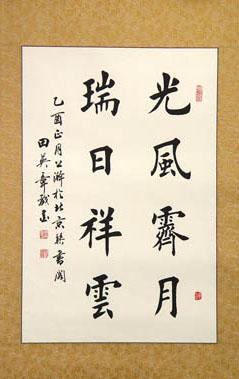 光風霽月
瑞日祥雲
乙酉正月上澣於北京
田英章敬書